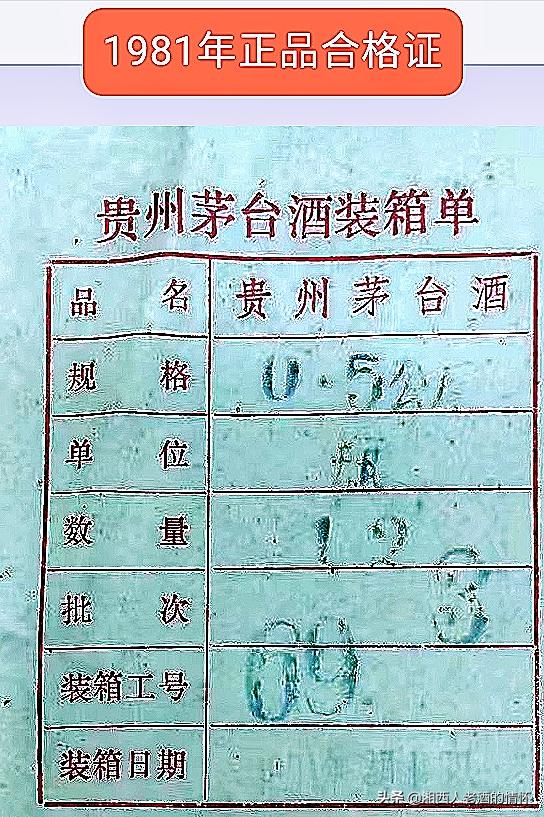 1981年正品合格证
贵州茅台酒装箱单
品名 贵州茅台酒
规格 0.5
单位 瓶
数量 12
批次 8
装箱工号 09
装箱日期
头条 @湘西人老酒的情怀